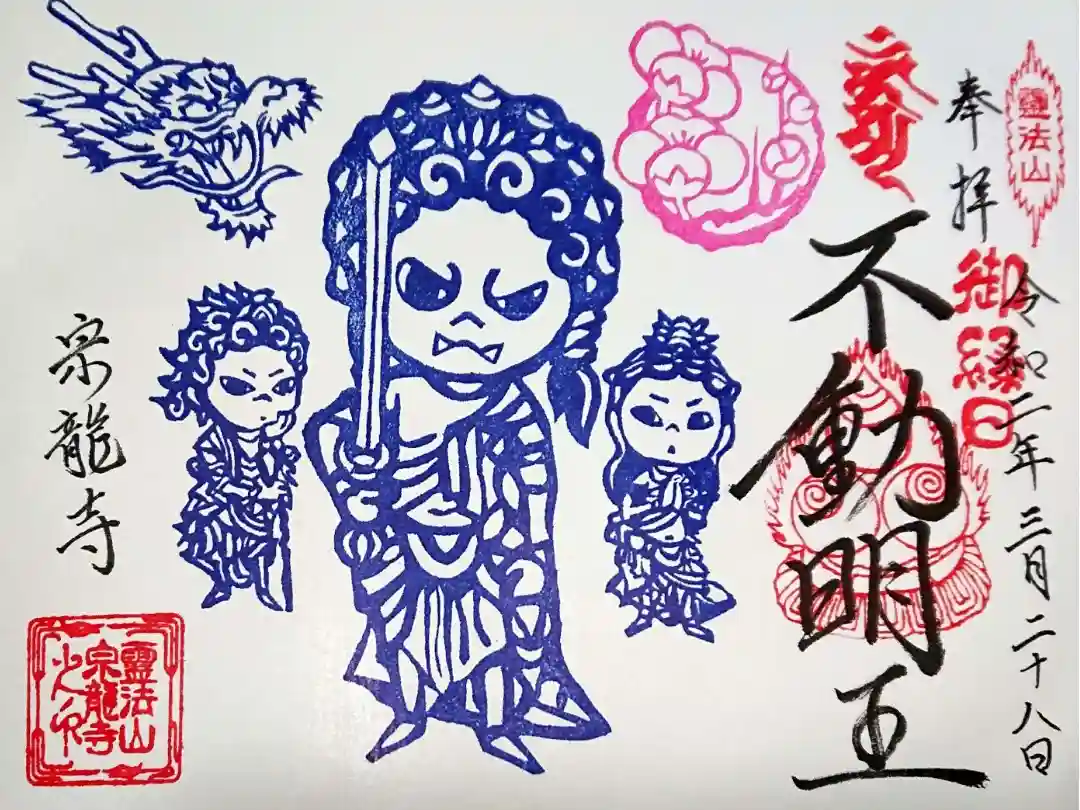 靈法山
奉拝
令和二年三月二十八日
御縁日
不動明王
泉龍寺
靈法山
泉龍寺